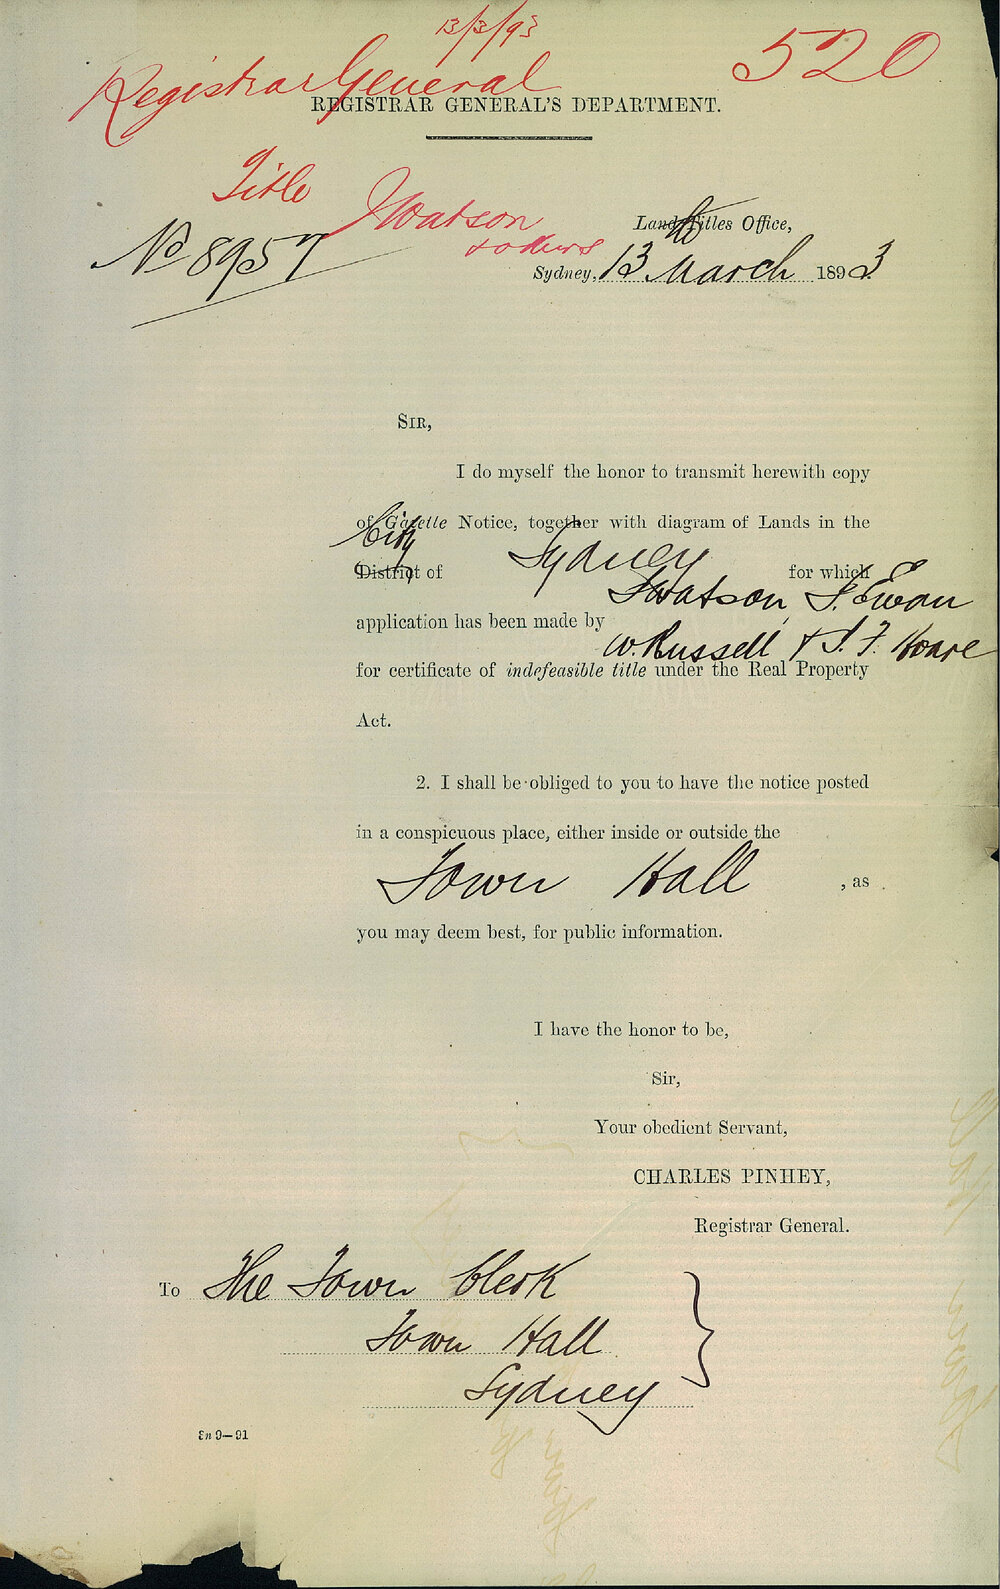 13/3/93
520
Registrar General
REGISTRAR GENERAL'S DEPARTMENT.
Title
J Watson
& others
No 8957
Land Titles Office,
Sydney, 13 March 1893
SIR,
I do myself the honor to transmit herewith copy
of Gazette Notice, together with diagram of Lands in the
City
District of Sydney for which
J Watson, J. Ewan
application has been made by
W. Russell & J. F. Hoare
for certificate of indefeasible title under the Real Property
Act.
2. I shall be obliged to you to have the notice posted
in a conspicuous place, either inside or outside the
Town Hall , as
you may deem best, for public information.
I have the honor to be,
Sir,
Your obedient Servant,
CHARLES PINHEY,
Registrar General.
To The Town Clerk
Town Hall
Sydney
9—91